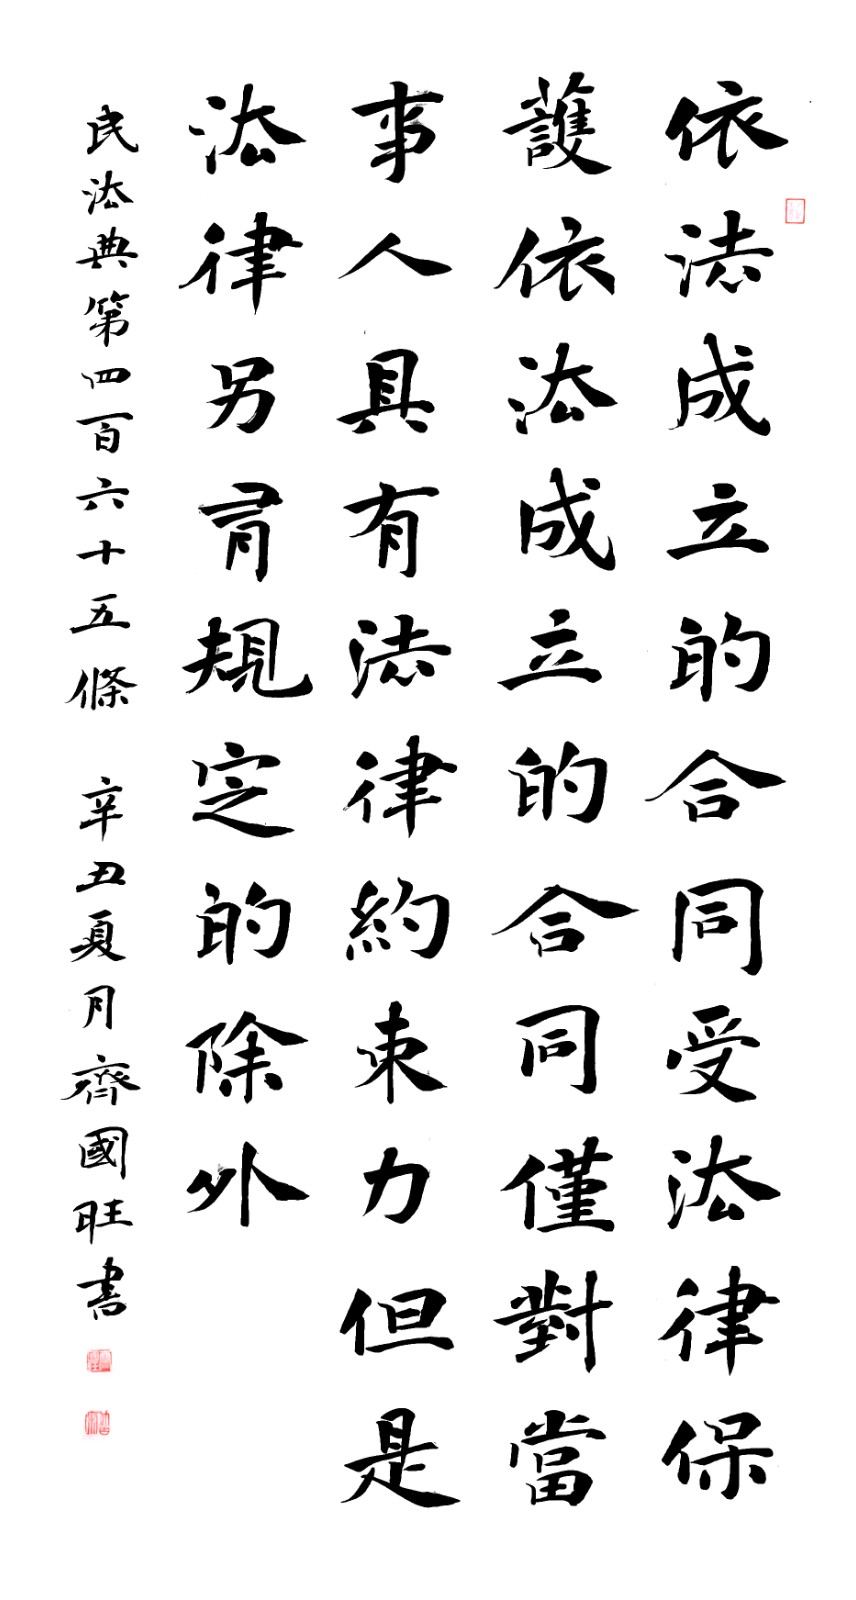 依法成立的合同受法律保
護依法成立的合同僅對當
事人具有法律約束力但是
法律另有規定的除外
民法典第四百六十五條 辛丑夏月齊國旺書